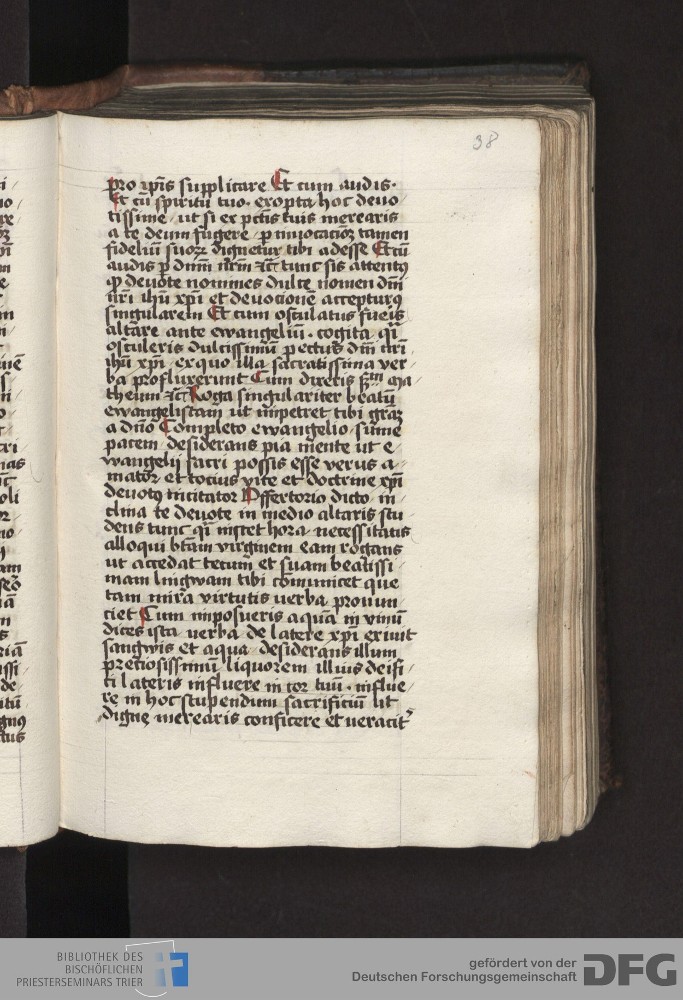 38
pro ip̄is supplicare Et cum audis·
Et cū spiritu tuo· exopta hoc deuo
tissime ut si ex pctīs tuis merearis
a te deum fugere p inuocacioꝫ tamen
fideliū suoꝝ dignetur tibi adesse Et cū
audis p dnm̄ nrm̄ ⁊c̄ tunc sis attentꝰ
ꝙ deuote nomines dulce nomen dn̄i
nrī ihū xpī et deuocionē accepturꝰ
singularem Et cum osculatus fueris
altare ante ewangeliū· cogita qͥ
osculeris dulcissimū pectus dn̄i nrī
ihū xpī ex quo illa sacratissima ver
ba profluxerunt Cum dixeris
theum ⁊c̄ Roga singulariter beatū
ewangelistam ut impetret tibi grāꝫ
a dn̄o Completo ewangelio sume
pacem desiderans pia mente ut e
wangelij sacri possis esse verus a
mator et tocius vite et doctrine xpī
deuotꝰ imitator Offertorio dicto in
clina te deuote in medio altaris stu
dens tunc qͥ instet hora necessitatis
alloqui btām virginem eam rogans
ut accedat tecum et suam beatissi
mam lingwam tibi cōmunicet que
tam mira virtutis uerba pronun
ciet Cum imposueris aquā in vinū
dices ista uerba de latere xpī exiuit
sangwis et aqua desiderans illum
preciosissimū liquorem illius deifi
ci lateris influere in cor tuū· influe
re in hoc stupendum sacrificiū ut
digne merearis conficere et ueracit᷑
BIBLIOTHEK DES
BISCHÖFLICHEN
PRIESTERSEMINARS TRIER
gefördert von der
Deutschen Forschungsgemeinschaft
DFG